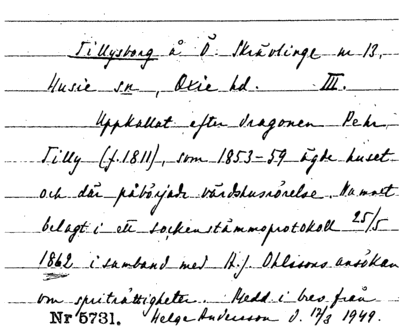 Tillysborg å Ö. Skrävlinge nr 13,
Husie sn, Oxie hd. III.
Uppkallat efter dragonen Pehr
Tilly (f. 1811), som 1853-59 ägde huset
och där påbörjade värdshusrörelse. Namnet
belagt i ett sockenstämmoprotokoll 25/5
1862 i samband med H.J. Ohlssons ansökan
om spriträttigheter. Medd. i brev från
Nr 5731. Helge Andersson d. 17/3 1949.